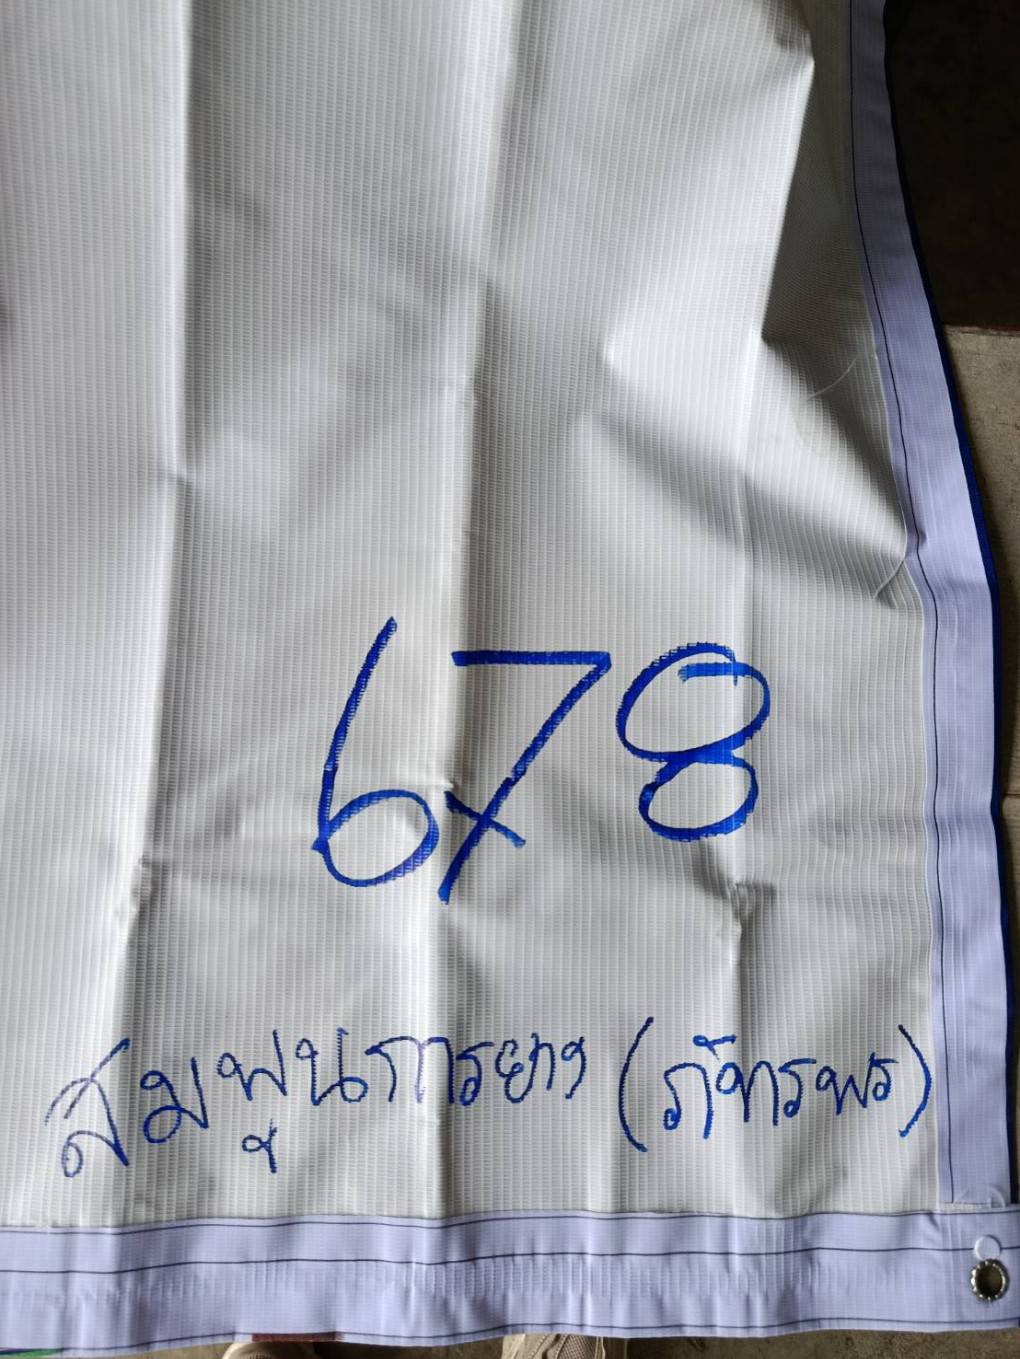 6x8
สมพูนการยาง (ภัทรพร)